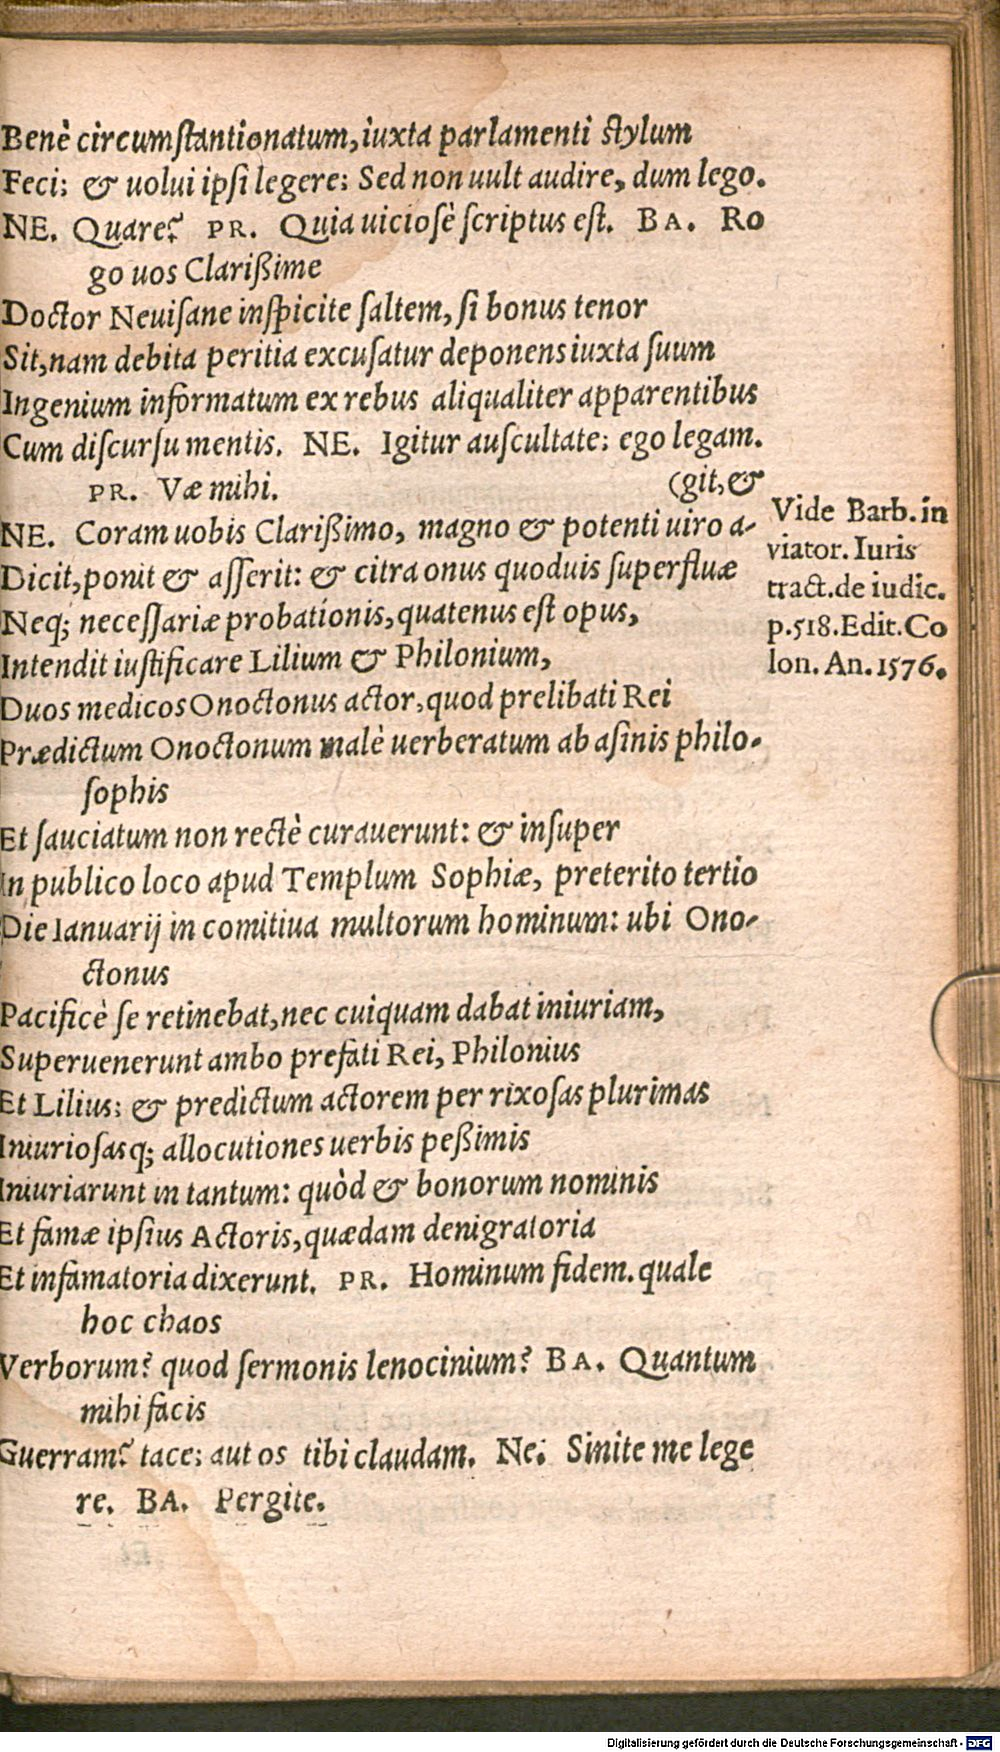 Benè circumstantionatum, iuxta parlamenti stylum
Feci: & uolui ipsi legere: Sed non uult audire, dum lego.
NE. Quare? PR. Quia uiciosè scriptus est. BA. Ro
go uos Clarißime
Doctor Neuisane inspicite saltem, si bonus tenor
Sit, nam debita peritia excusatur deponens iuxta suum
Ingenium informatum ex rebus aliqualiter apparentibus
Cum discursu mentis. NE. Igitur auscultate: ego legam.
PR. Væ mihi. (git, &
NE. Coram uobis Clarißimo, magno & potenti uiro a-
Dicit, ponit & asserit: & citra onus quoduis superfluæ
Neq; necessariæ probationis, quatenus est opus,
Intendit iustificare Lilium & Philonium,
Duos medicos Onoctonus actor, quod prelibati Rei
Prædictum Onoctonum malè uerberatum ab asinis philo-
sophis
Et sauciatum non rectè curauerunt: & insuper
In publico loco apud Templum Sophiæ, preterito tertio
Die Ianuarij in comitiua multorum hominum: ubi Ono-
ctonus
Pacificè se retinebat, nec cuiquam dabat iniuriam,
Superuenerunt ambo prefati Rei, Philonius
Et Lilius: & predictum actorem per rixosas plurimas
Iniuriosasq; allocutiones uerbis peßimis
Iniuriarunt in tantum: quòd & bonorum nominis
Et famæ ipsius Actoris, quædam denigratoria
Et infamatoria dixerunt. PR. Hominum fidem. quale
hoc chaos
Verborum? quod sermonis lenocinium? BA. Quantum
mihi facis
Guerram? tace: aut os tibi claudam. Ne. Sinite me lege
re. BA. Pergite.
Vide Barb. in
viator. Iuris
tract. de iudic.
p. 518. Edit. Co
lon. An. 1576.
Digitalisierung gefördert durch die Deutsche Forschungsgemeinschaft - DFG